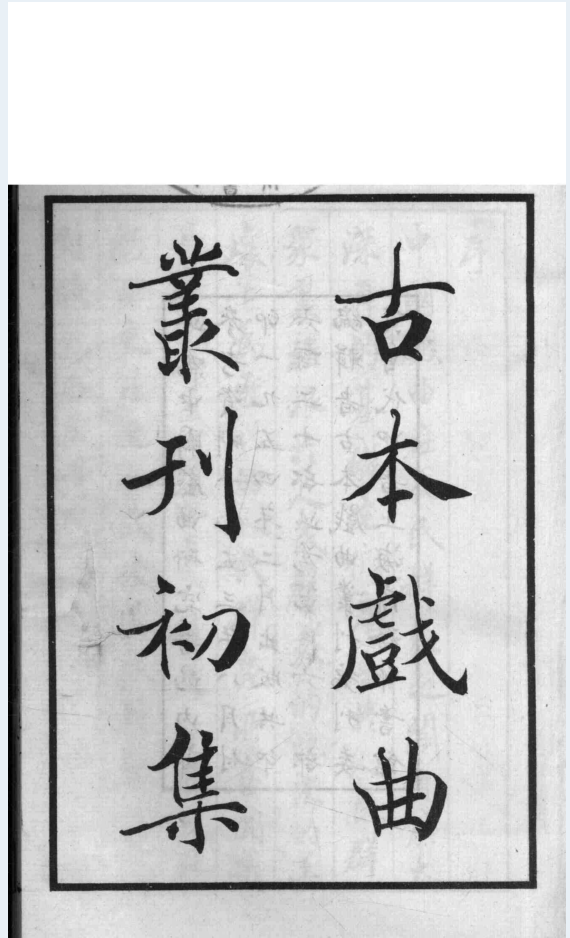 古本戲曲
叢刊初集